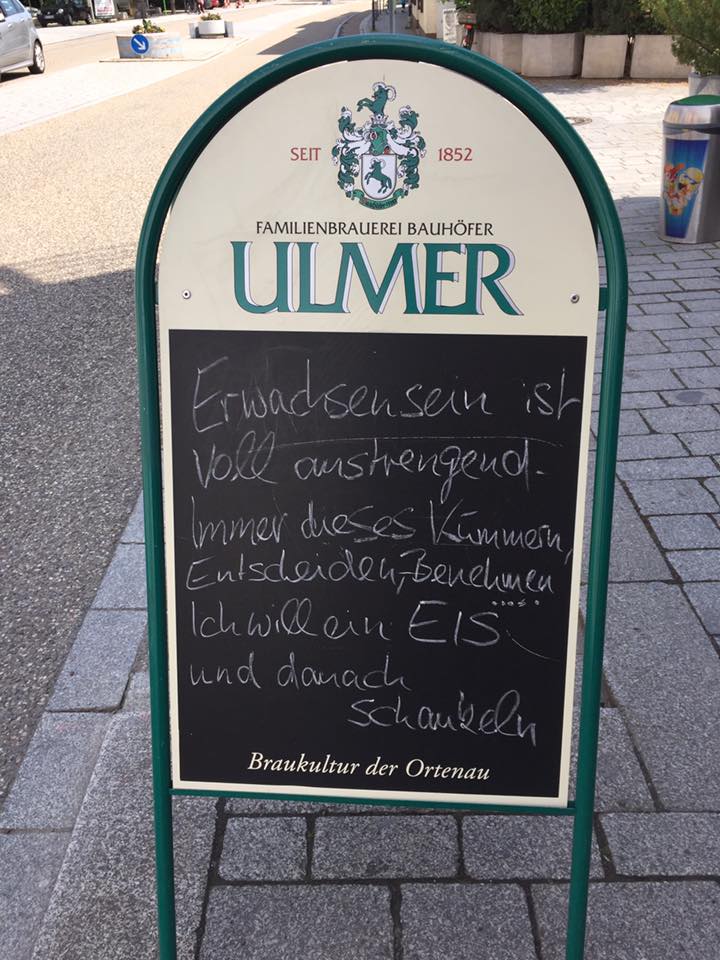 SEIT 1852
FAMILIENBRAUEREI BAUHÖFER
ULMER
Erwachsensein ist
Voll anstrengend.
Immer dieses Kümmern,
Entscheiden, Benehmen
.....
Ich will ein EIS
und danach
schaukeln
Braukultur der Ortenau